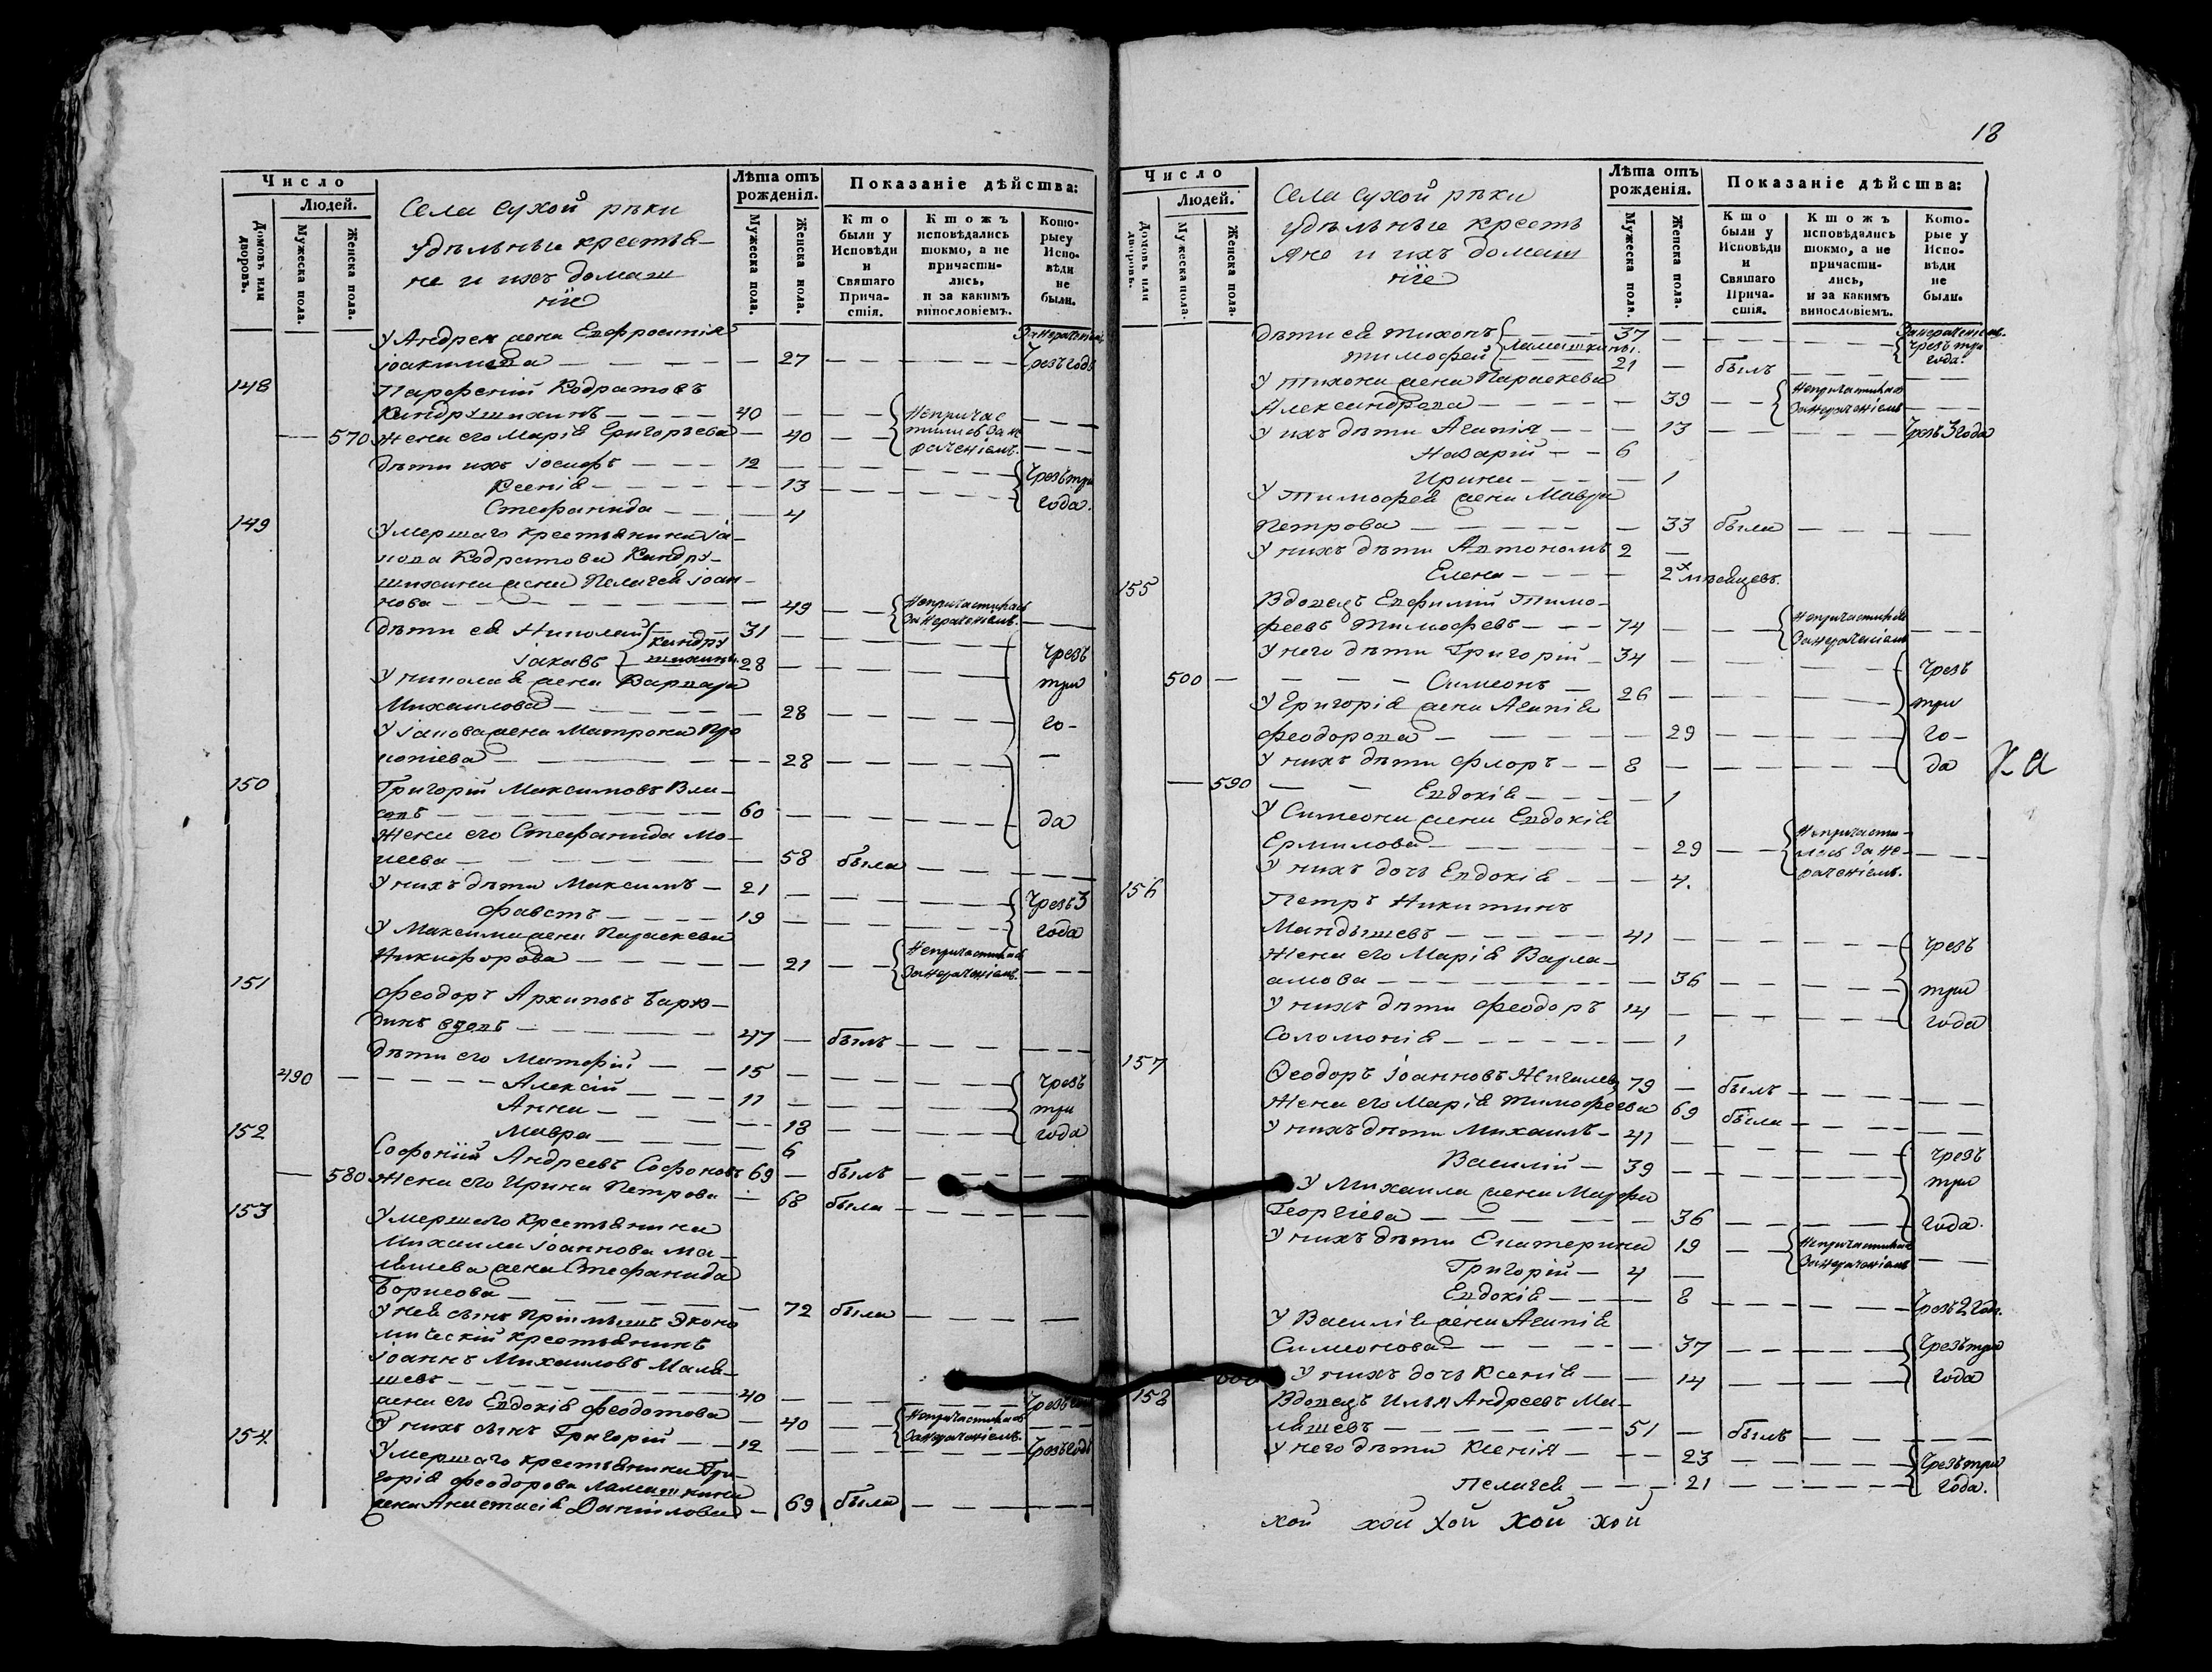 Число
Людей.
Домовъ или дворовъ.
Мужеска пола.
Женска пола.
Села Сухой рѣки
удѣльные крестья-
не и ихъ домаш
ніе
Лѣта отъ рожденія.
Мужеска пола.
Женска пола.
Показаніе дѣйства:
Кто были у Исповѣди и Святаго Причастія.
Ктожъ исповѣдались токмо, а не причастились, и за какимъ винословіемъ.
Которые у Исповѣди не были.
У Андрея жена Евфросинія За нераченіемъ
Іоакимова — 27 — Чрезъ годъ
148 Парфеній Кодратовъ
Кандрашихинъ — 40 — Непричас
570 Жена его Марія Григорьева — 40 — тились за не
раченіемъ.
Дѣти ихъ Іосифъ — 12 —
Ксенія — 13 — Чрезъ три
Стефанида — 4 года.
149 Умершаго крестьянина Іа-
кова Кодратова Кандра-
шихина жена Пелагея Іоан-
нова — 49 — Непричастилась
За нераченіемъ.
Дѣти ея Николай 31 — Кандра
Іаковъ шихины 28 — Чрезъ
У Николая жена Варвара три
Михаилова — 28 — го-
У Іакова жена Матрона Про
копіева — 28 —
150 Григорій Максимовъ Вла-
совъ — 60 — да
Жена его Стефанида Мо-
исеева — 58 была —
У нихъ дѣти Максимъ — 21 —
Фавстъ — 19 — Чрезъ 3
У Максима жена Параскева года
Никифорова — 21 — Непричастилась
За нераченіемъ.
151 Феодоръ Архиповъ
вдовъ — 47 — былъ —
Дѣти его Матфій — 15 —
490 — Алексій — 11 — Чрезъ
Анна — 18 — три
Мавра — 6 года
152 Софоній Андреевъ Софоновъ 69 — былъ —
580 Жена его Ирина Петрова — 68 была —
153 Умершаго крестьянина
Михаила Іоаннова Ма-
лышева жена Стефанида
Борисова — 72 была —
У нея сынъ Пріимышъ Эконо
мическій крестьянинъ
Іоаннъ Михаиловъ Малы-
шевъ — 40 —
жена его Евдокія Феодотова — 40 — Непричастилась
За нераченіемъ.
У нихъ сынъ Григорій — 12 — Чрезъ годъ
154. Умершаго крестьянина Гри-
горія Феодорова Ламашкина
жена Анастасія Даніилова — 69 была —
18
Число
Людей.
Домовъ или дворовъ.
Мужеска пола.
Женска пола.
Села Сухой рѣки
удѣльные кресть
яне и ихъ домаш
ніе
Лѣта отъ рожденія.
Мужеска пола.
Женска пола.
Показаніе дѣйства:
Кто были у Исповѣди и Святаго Причастія.
Ктожъ исповѣдались токмо, а не причастились, и за какимъ винословіемъ.
Которые у Исповѣди не были.
Дѣти ея Тихонъ — 37 — За нераченіемъ.
Ламашкины. Чрезъ три
Тимофей 21 — былъ года.
У Тихона жена Параскева
Александрова — 39 — Непричастилась
За нераченіемъ
У ихъ дѣти Агапія — 13 — Чрезъ 3 года
Назарій — 6
Ирина — 1
У Тимофея жена Мавра
Петрова — 33 была —
У нихъ дѣти Автономъ 2 —
Елена — 2х мѣсяцевъ.
155 Вдовецъ Евфимій Тимо-
феевъ Тимофеевъ — 74 — Непричастился
За нераченіемъ
У него дѣти Григорій — 34 — Чрезъ
500 — Симеонъ — 26 —
У Григорія жена Агапія три
Феодорова — 29 — го-
У нихъ дѣти Флоръ — 8 — да
590 — Евдокія — 1
У Симеона жена Евдокія
Ермилова — 29 — Непричасти-
лась за не-
раченіемъ.
У нихъ дочь Евдокія — 4.
156 Петръ Никитинъ
Мандышевъ — 41 — Чрезъ
Жена его Марія Варла-
амова — 36 — три
У нихъ дѣти Феодоръ 14 —
Соломонія — 1 года
157 Ѳеодоръ Іоанновъ Жигалевъ 79 — былъ —
Жена его Марія Тимофеева 69 была —
У нихъ дѣти Михаилъ — 41 — Чрезъ
Василій — 39 — три
У Михаила жена Марфа
Георгіева — 36 — года.
У нихъ дѣти Екатерина 19 — Непричастилась
За нераченіемъ
Григорій — 4 —
Евдокія — 8 — Чрезъ 2 года.
У Василія жена Агапія
Симеонова — 37 — Чрезъ три
У нихъ дочь Ксенія — 14 — года
158 Вдовецъ Илія Андреевъ Ма-
лышевъ — 51 — былъ —
У него дѣти Ксенія — 23 — Чрезъ три
Пелагея — 21 — года.
хой хой хой хой хой